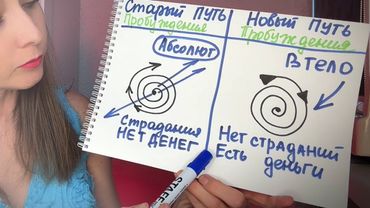 Старый Путь
Пробуждения
Абсолют
Страдания
НЕТ ДЕНЕГ
Новый Путь
Пробуждения
В ТЕЛО
Нет страданий
Есть деньги
STAFF